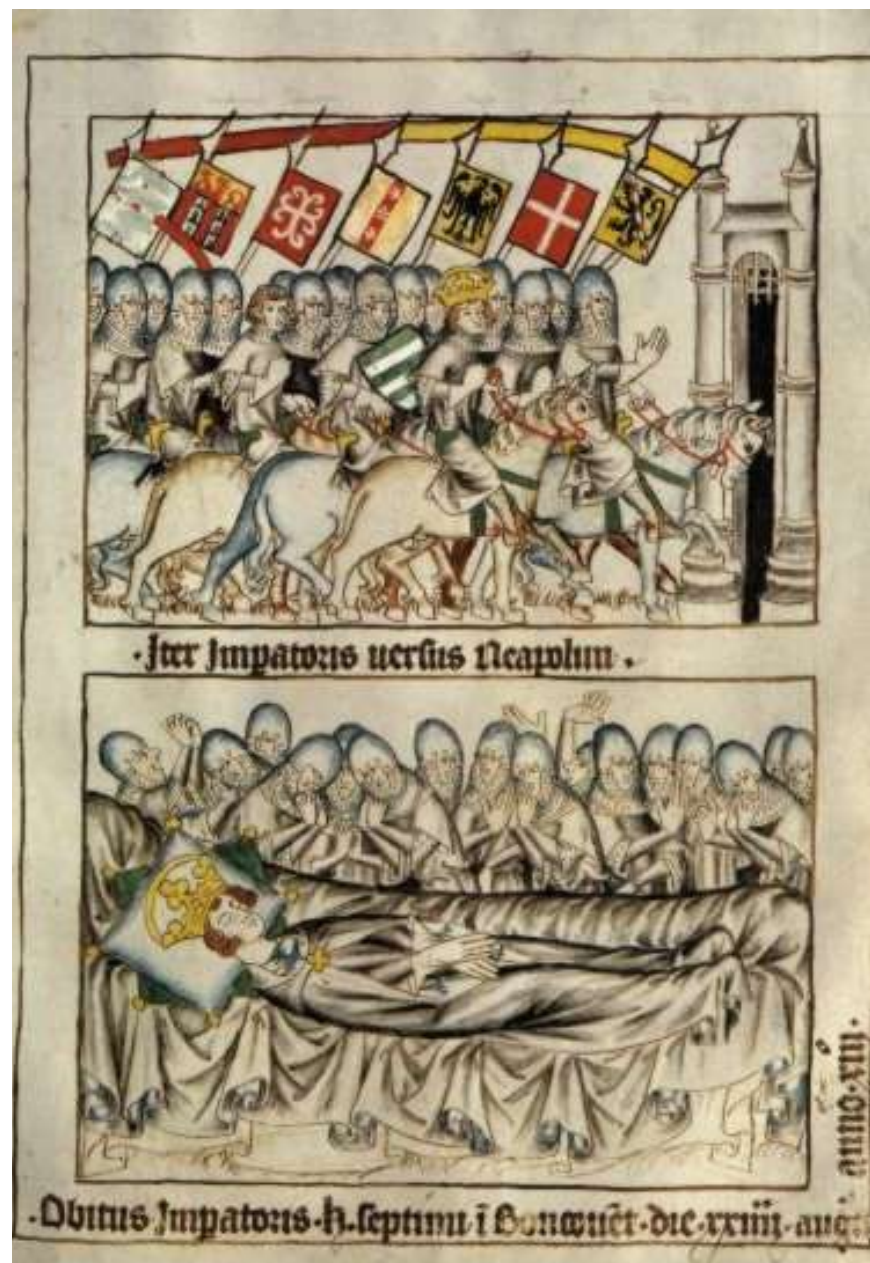 · Iter Impatoris uersus Neapolim .
· Obitus Impatoris · h · septimi ī Bonconuēt · die · xxiiii · augti
anno · xiii ·